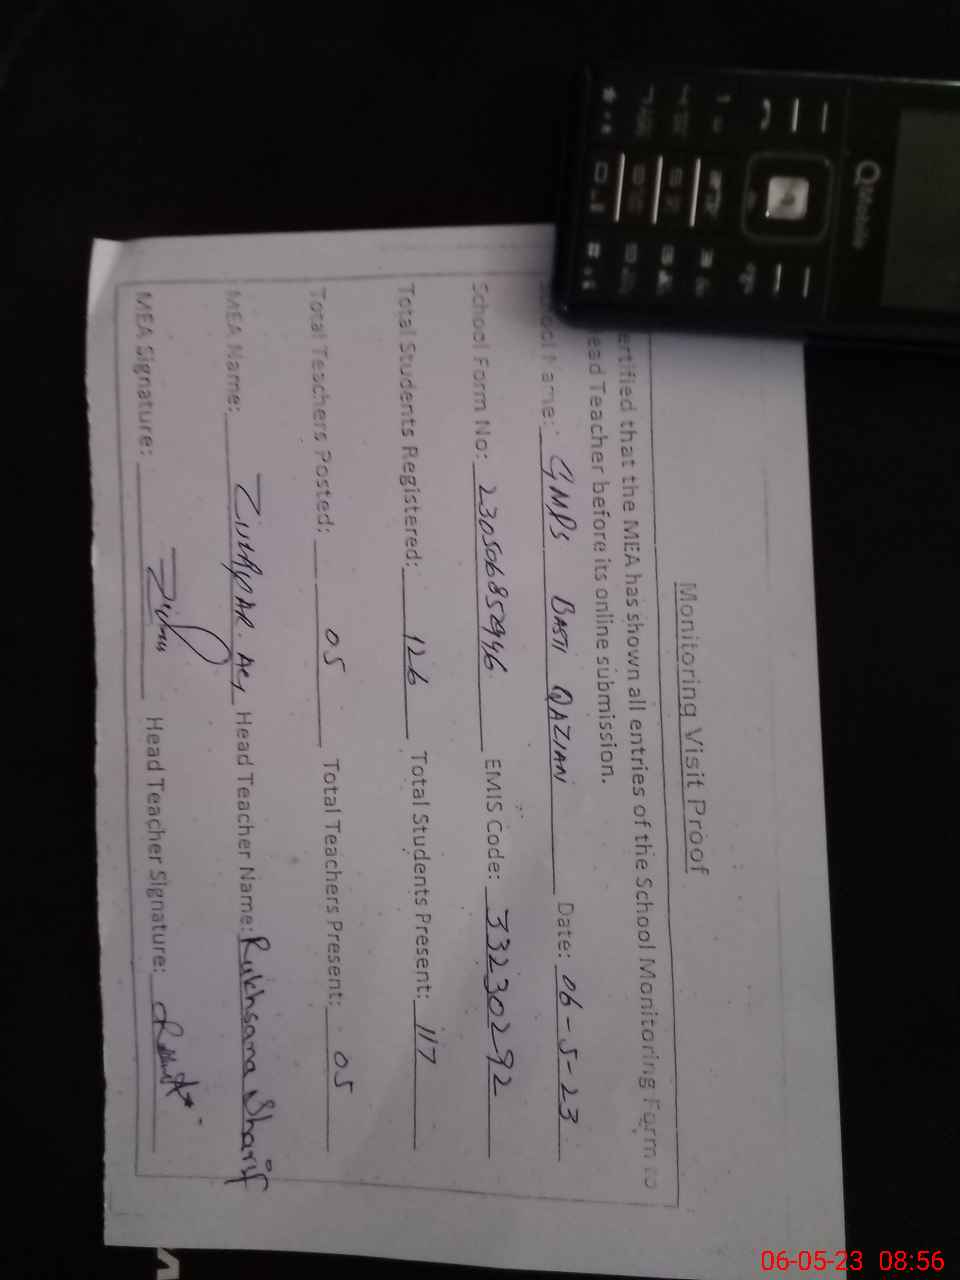 Monitoring Visit Proof
ertified that the MEA has shown all entries of the School Monitoring Form to
ead Teacher before its online submission.
ool Name: GMPS BASTI QAZIAN Date: 06-5-23
School Form No: 230506852946 EMIS Code: 33230292
Total Students Registered: 126 Total Students Present: 117
Total Teachers Posted: 05 Total Teachers Present: 05
MEA Name: Head Teacher Name: Rukhsana Sharif
MEA Signature: Head Teacher Signature:
QMobile
06-05-23 08:56